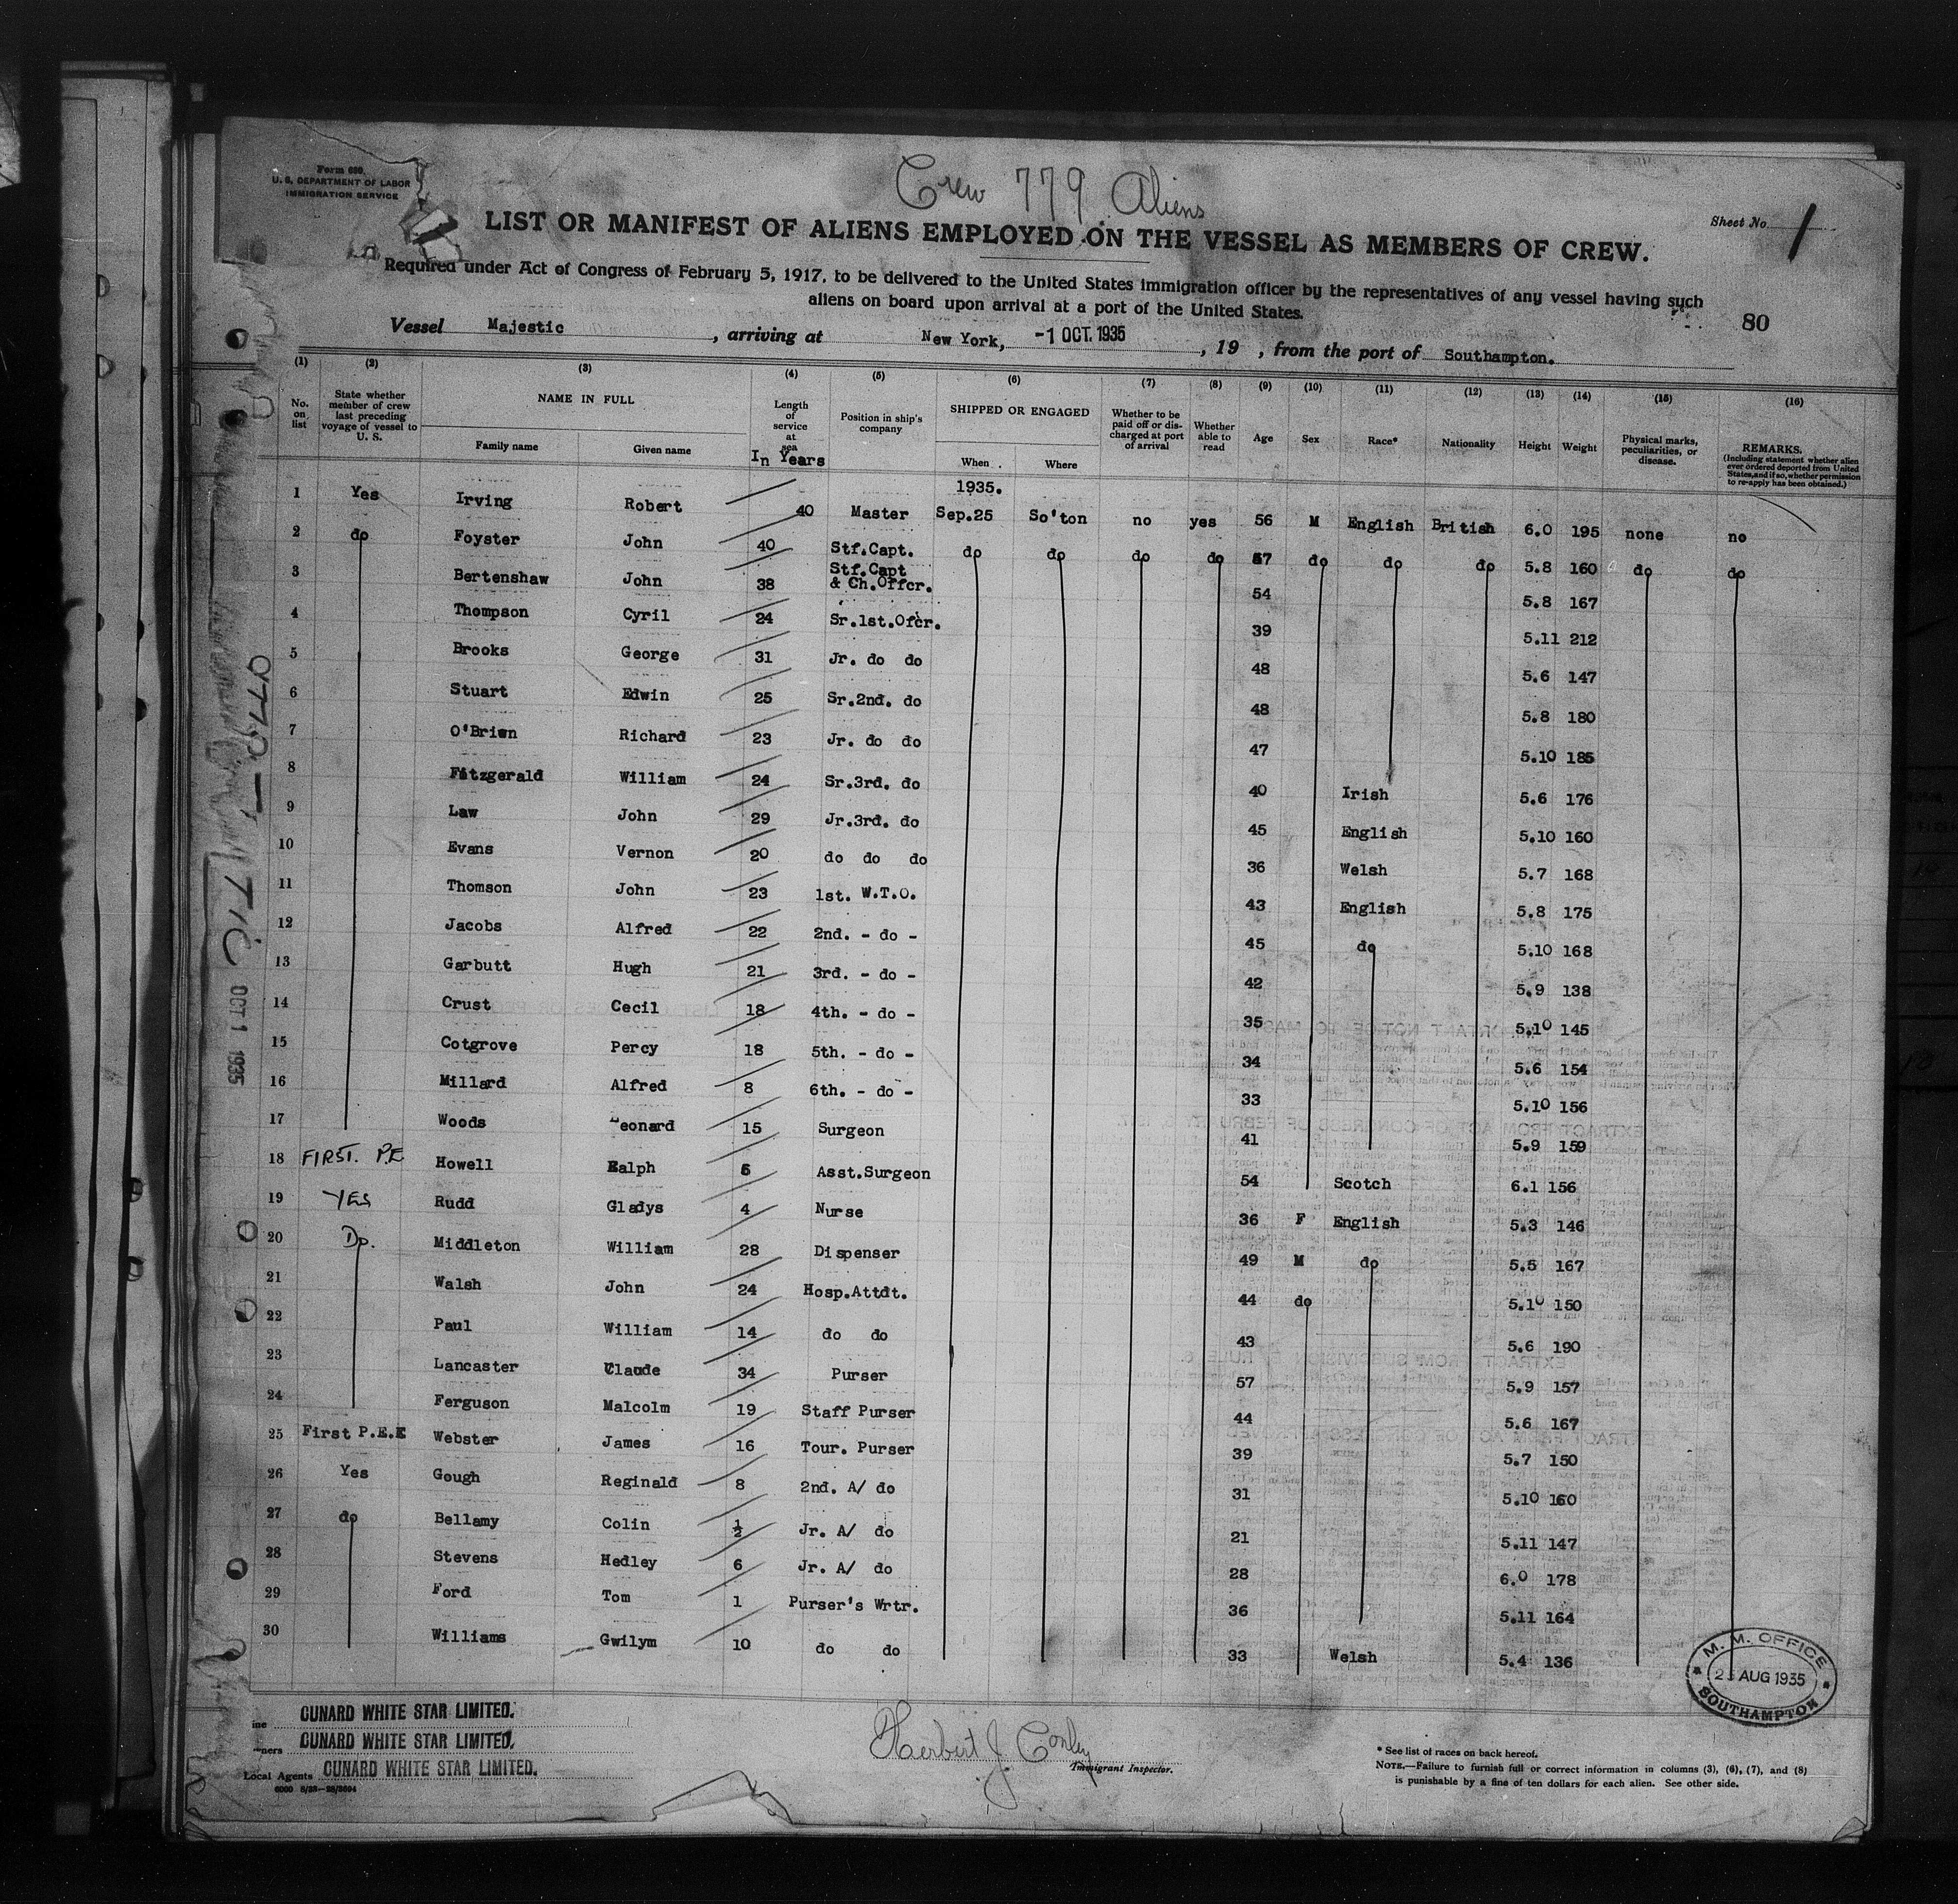 Form 680.
U. S. DEPARTMENT OF LABOR
IMMIGRATION SERVICE
Crew 779 Aliens
Sheet No. 1
LIST OR MANIFEST OF ALIENS EMPLOYED ON THE VESSEL AS MEMBERS OF CREW.
Required under Act of Congress of February 5, 1917, to be delivered to the United States immigration officer by the representatives of any vessel having such
aliens on board upon arrival at a port of the United States.
80
Vessel Majestic , arriving at New York, -1 OCT. 1935 , 19 , from the port of Southampton.
(1) (2) (3) (4) (5) (6) (7) (8) (9) (10) (11) (12) (13) (14) (15) (16)
No. on list
State whether member of crew last preceding voyage of vessel to U. S.
NAME IN FULL
Family name Given name
Length of service at sea
In Years
Position in ship's company
SHIPPED OR ENGAGED
When. Where
Whether to be paid off or discharged at port of arrival
Whether able to read
Age Sex Race* Nationality Height Weight
Physical marks, peculiarities, or disease.
REMARKS.
(Including statement whether alien ever ordered deported from United States, and if so, whether permission to re-apply has been obtained.)
1935.
1 Yes Irving Robert 40 Master Sep.25 So'ton no yes 56 M English British 6.0 195 none no
2 do Foyster John 40 Stf.Capt. do do do do 57 do do do 5.8 160 do do
3 Bertenshaw John 38 Stf.Capt & Ch.Offcr. 54 5.8 167
4 Thompson Cyril 24 Sr.1st.Ofcr. 39 5.11 212
5 Brooks George 31 Jr. do do 48 5.6 147
6 Stuart Edwin 25 Sr.2nd. do 48 5.8 180
7 O'Brien Richard 23 Jr. do do 47 5.10 185
8 Fitzgerald William 24 Sr.3rd. do 40 Irish 5.6 176
9 Law John 29 Jr.3rd. do 45 English 5.10 160
10 Evans Vernon 20 do do do 36 Welsh 5.7 168
11 Thomson John 23 1st. W.T.O. 43 English 5.8 175
12 Jacobs Alfred 22 2nd. - do - 45 do 5.10 168
13 Garbutt Hugh 21 3rd. - do - 42 5.9 138
14 Crust Cecil 18 4th. - do - 35 5.10 145
15 Cotgrove Percy 18 5th. - do - 34 5.6 154
16 Millard Alfred 8 6th. - do - 33 5.10 156
17 Woods Leonard 15 Surgeon 41 5.9 159
18 FIRST. P.E Howell Ralph 6 Asst.Surgeon 54 Scotch 6.1 156
19 YES Rudd Gladys 4 Nurse 36 F English 5.3 146
20 Do. Middleton William 28 Dispenser 49 M do 5.5 167
21 Walsh John 24 Hosp.Attdt. 44 do 5.10 150
22 Paul William 14 do do 43 5.6 190
23 Lancaster Claude 34 Purser 57 5.9 157
24 Ferguson Malcolm 19 Staff Purser 44 5.6 167
25 First P.E.E Webster James 16 Tour. Purser 39 5.7 150
26 Yes Gough Reginald 8 2nd. A/ do 31 5.10 160
27 do Bellamy Colin ½ Jr. A/ do 21 5.11 147
28 Stevens Hedley 6 Jr. A/ do 28 6.0 178
29 Ford Tom 1 Purser's Wrtr. 36 5.11 164
30 Williams Gwilym 10 do do 33 Welsh 5.4 136
OCT 1 1935
M. M. OFFICE
AUG 1935
SOUTHAMPTON
ine CUNARD WHITE STAR LIMITED.
wners CUNARD WHITE STAR LIMITED.
Local Agents CUNARD WHITE STAR LIMITED.
Herbert J Conley
Immigrant Inspector.
* See list of races on back hereof.
NOTE.—Failure to furnish full or correct information in columns (3), (6), (7), and (8)
is punishable by a fine of ten dollars for each alien. See other side.